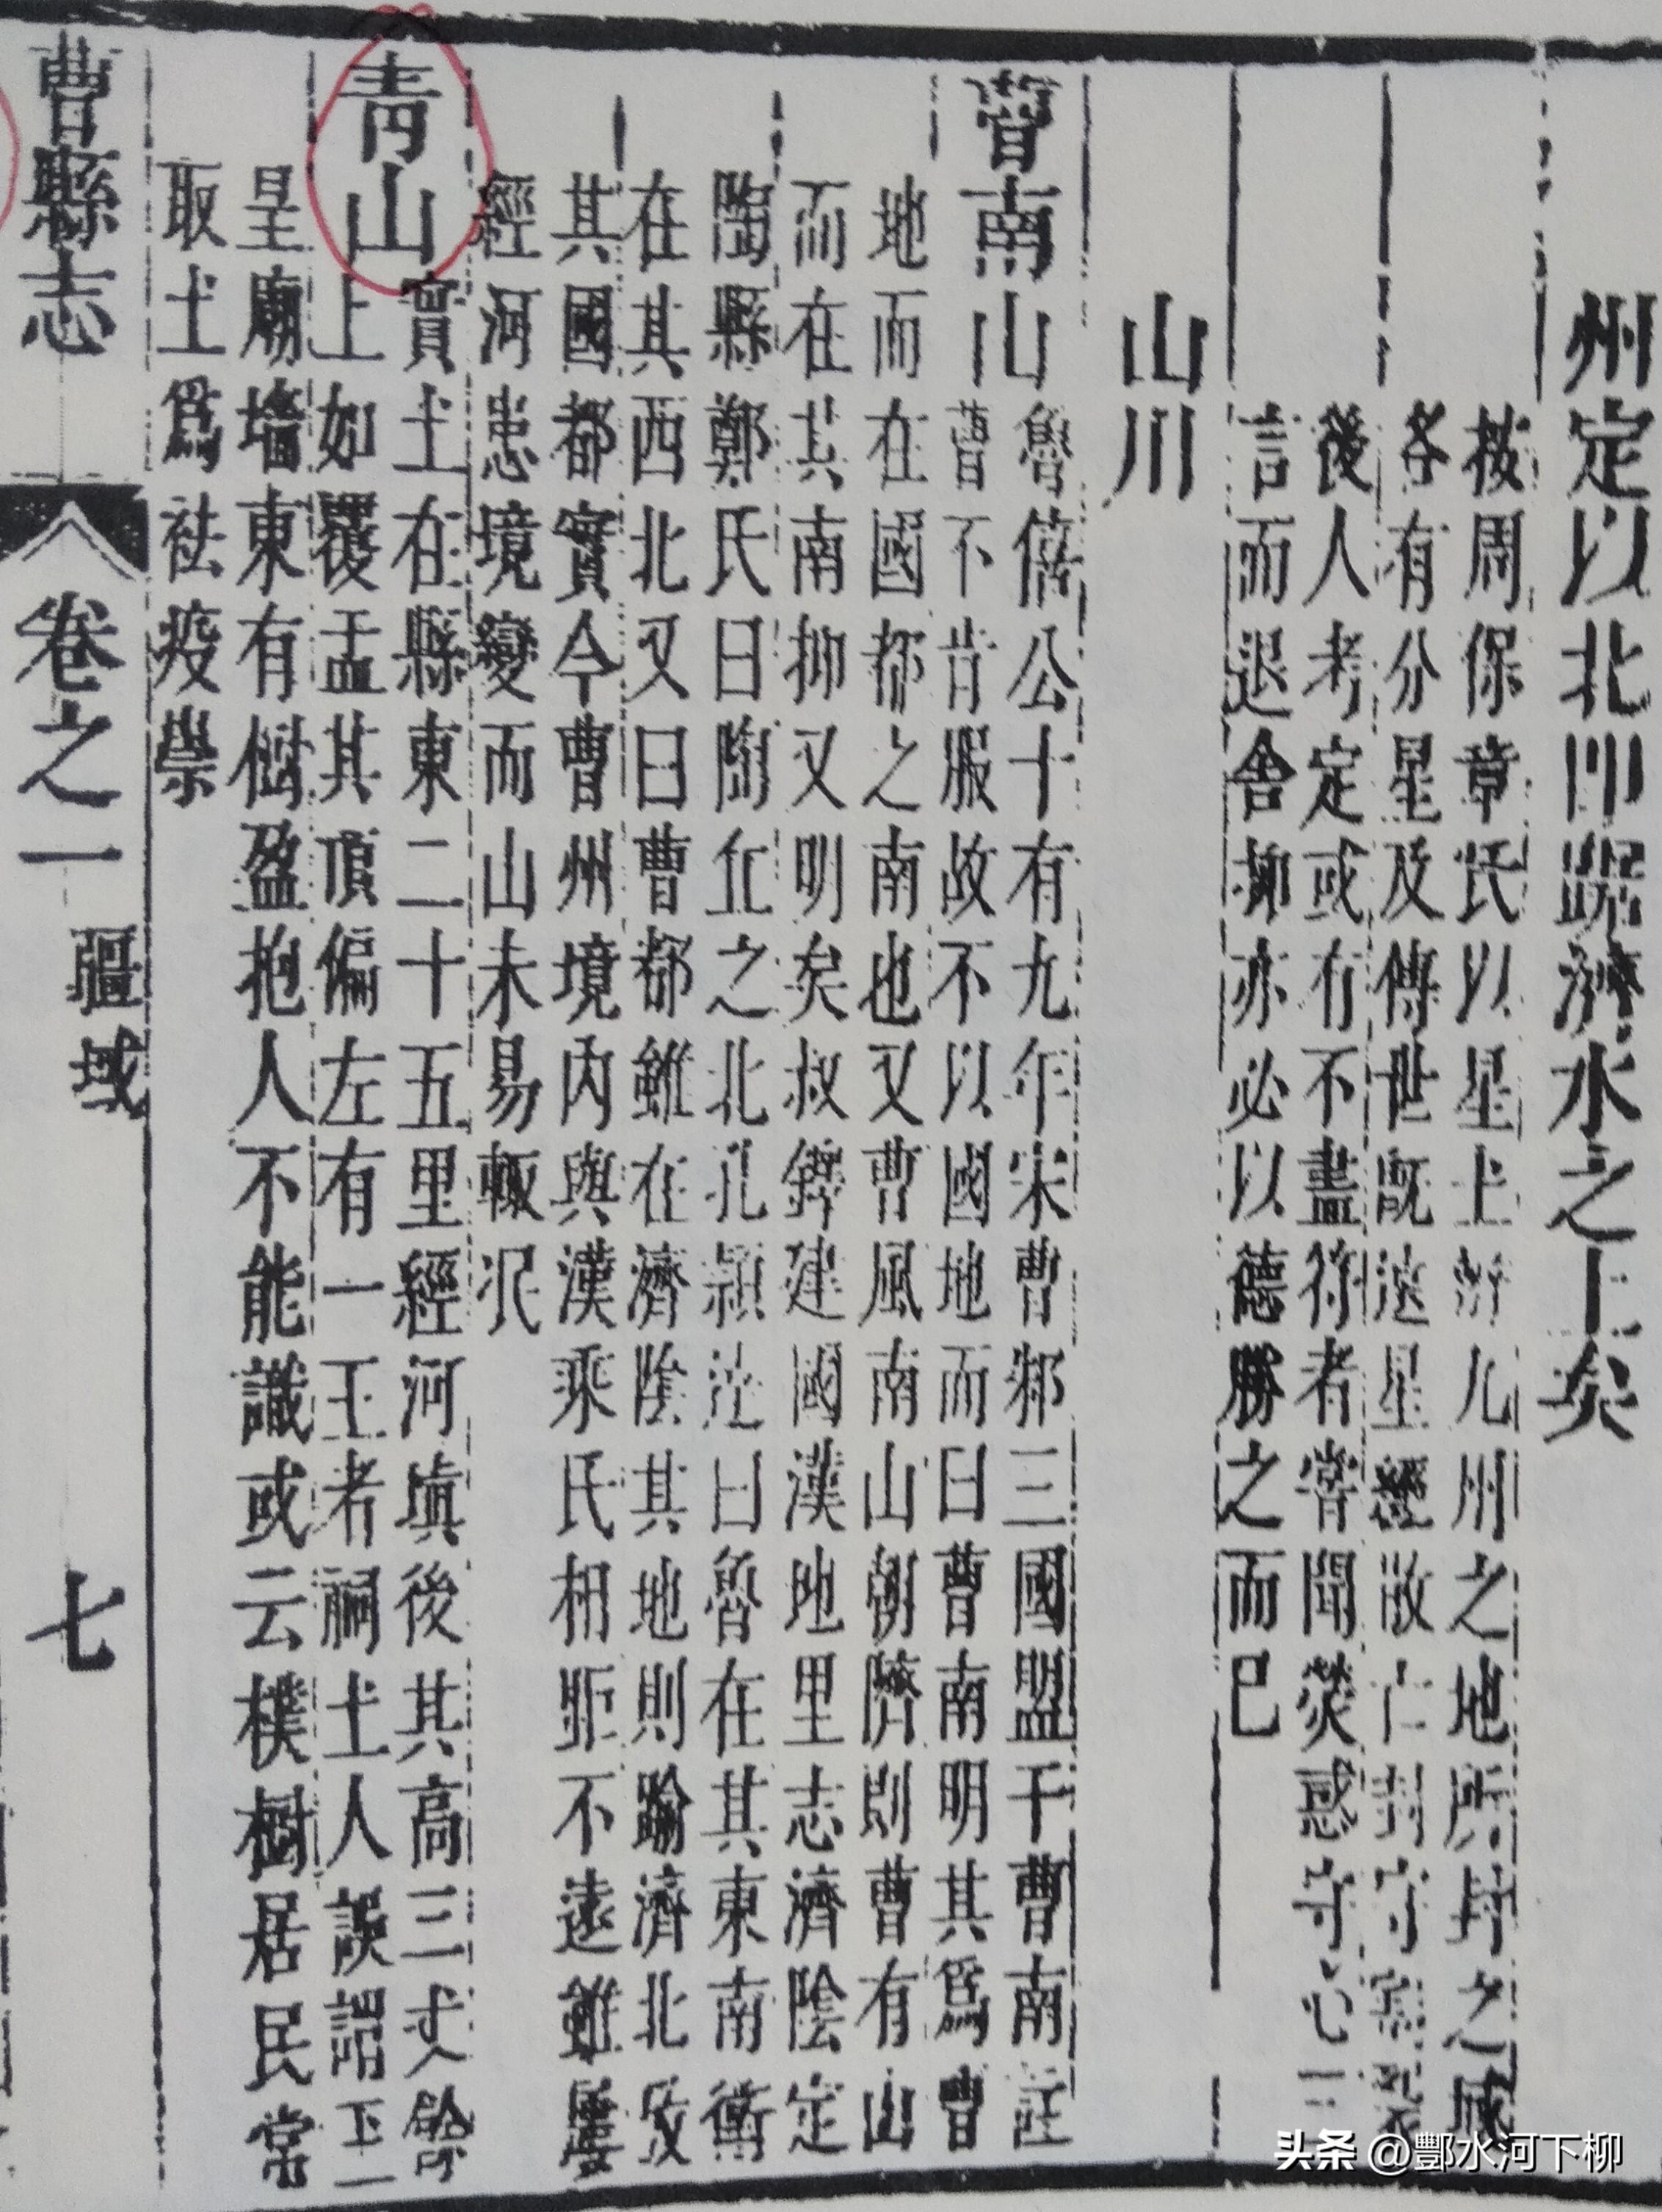 州定以北卽踞濟水之上矣
按周保章氏以星土辨九州之地所封之域
各有分星及傳世既遠星經散亡封守
後人考定或有不盡符者嘗聞熒惑守心
言而退舍抑亦必以德勝之而已
山川
曹南山 魯僖公十有九年宋曹邾三國盟于曹南註
曹不肯服故不以國地而曰曹南明其爲曹
地而在國都之南也又曹風南山朝隮則曹有山
而在其南抑又明矣叔鐸建國漢地里志濟陰定
陶縣鄭氏曰陶丘之北孔穎達曰魯在其東南衛
在其西北又曰曹都雖在濟陰其地則踰濟北攷
其國都實今曹州境內與漢乘氏相距不遠雖屢
經河患境變而山未易輒泯
青山 實土在縣東二十五里經河塡後其高三丈餘
上如覆盂其頂偏左有一玉者祠土人誤謂玉
皇廟墻東有樹盈抱人不能識或云樸樹居民常
取土爲祛疫祟
曹縣志
卷之一
疆域
七
头条 @酆水河下柳